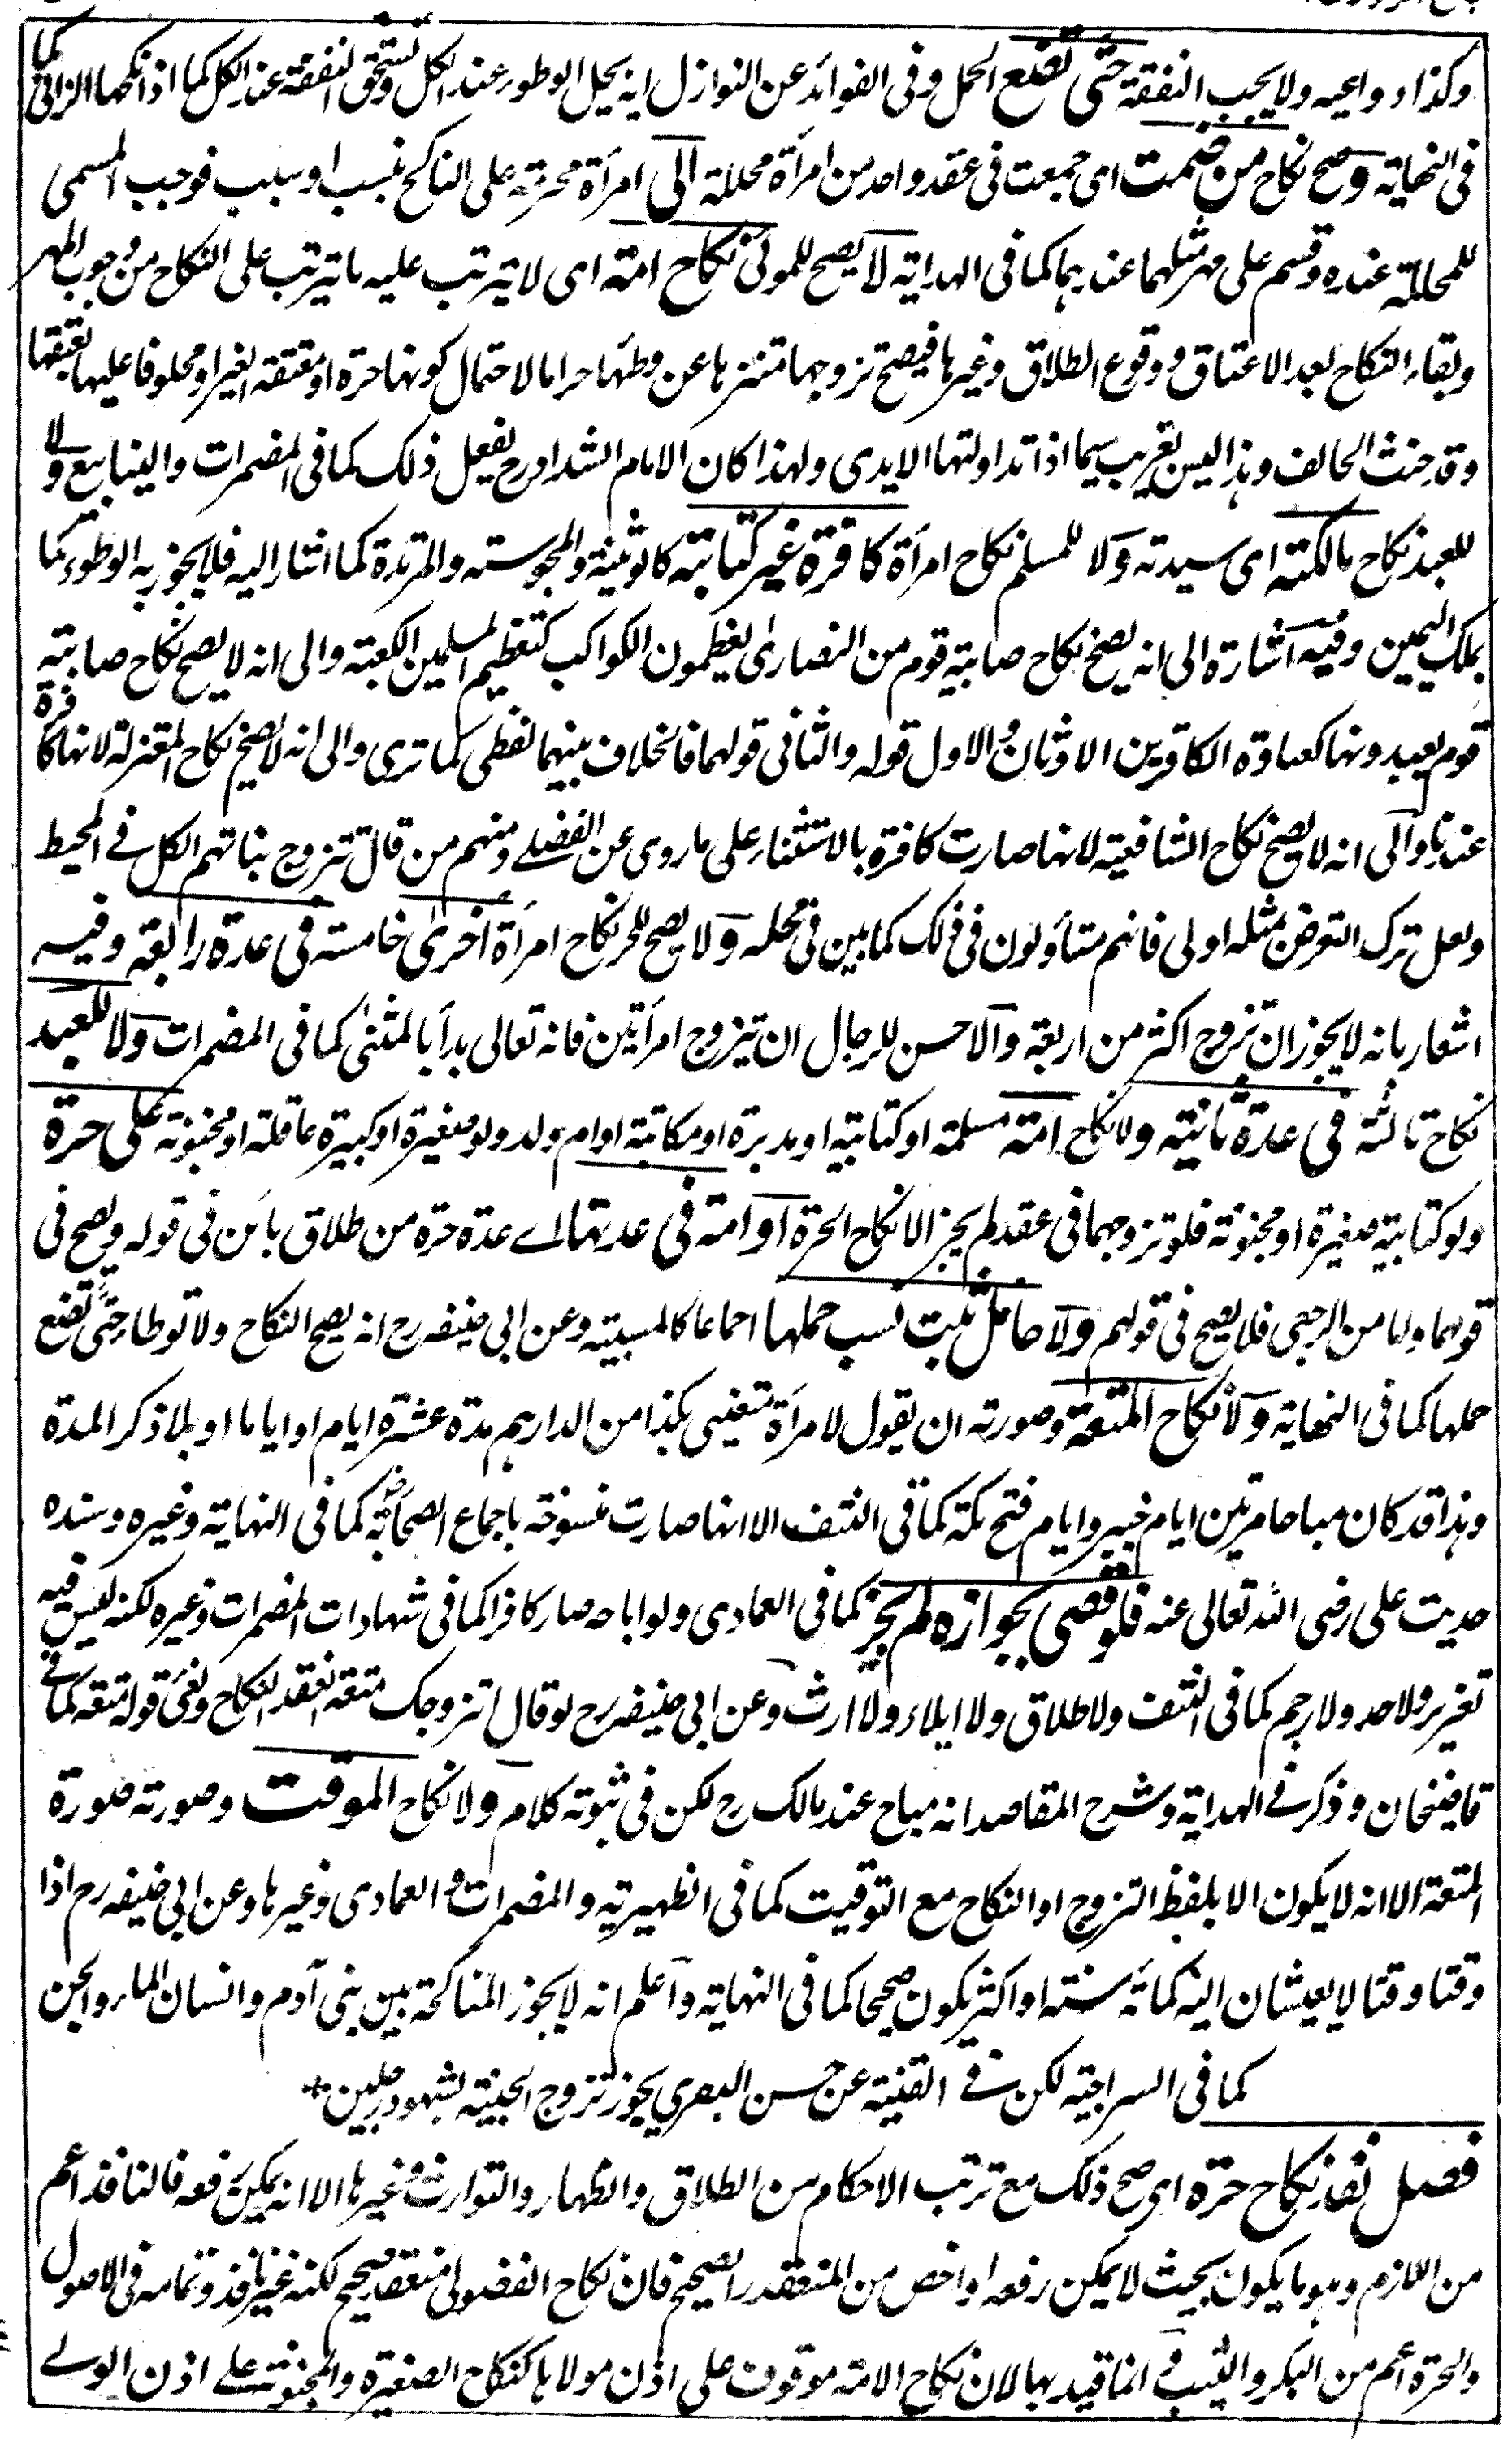 وكذا دواعيه ولا يجب النفقة حتى تضع الحمل وفى الفوائد عن النوازل انه يحل الوطور عند الكل وتستحق النفقة عند الكل كما اذا نكحها الزانى كما
فى النهاية وصح نكاح من ضمت اى جمعت فى عقد واحد من امرأة محللة الى امرأة محرمة على الناكح بنسب او سبب فوجب المسمى
للمحللة عنده وقسم على مهر مثلهما عندهما كما فى الهداية لا يصح للمولى نكاح امته اى لا يترتب عليه ما يترتب على النكاح من وجوب المهر
وبقاء النكاح بعد الاعتاق ووقوع الطلاق وغيرها فيصح تزوجها متنزها عن وطئها حراما لاحتمال كونها حرة او معتقة الغير او محلوفا عليها بعتقها
وقد حنث الحالف وهذا ليس بغريب سيما اذا تداولتها الايدى ولهذا كان الامام الشداد رح يفعل ذلك كما فى المضمرات والينابيع ولا
للعبد نكاح مالكته اى سيدته ولا للمسلم نكاح امرأة كافرة غير كتابية كالوثنية والمجوسية والمرتدة كما اشار اليه فلا يجوز به الوطوء كما
بملك اليمين وفيه اشارة الى انه يصح نكاح صابية قوم من النصارى يعظمون الكواكب كتعظيم المسلمين الكعبة والى انه لا يصح نكاح صابية
قوم يعبدونها كعبادة الكافرين الاوثان والاول قوله والثانى قولهما فالخلاف بينهما لفظى كما ترى والى انه لا يصح نكاح المعتزلة لانها كافرة
عندنا والى انه لا يصح نكاح الشافعية لانها صارت كافرة بالاستثناء على ما روى عن الفضلے ومنهم من قال تتزوج بناتهم الكل فے المحيط
ولعل ترك التعرض لمثله اولى فانهم متأولون فى ذلك كما بين فى محله ولا يصح للحر نكاح امرأة اخرى خامسة فى عدة رابعة وفيه
اشعار بانه لا يجوز ان يتزوج اكثر من اربعة والاحسن للرجال ان يتزوج امرأتين فانه تعالى بدأ بالمثنى كما فى المضمرات ولا للعبد
نكاح ثالثة فى عدة ثانية ولا نكاح امة مسلمة او كتابية او مدبرة او مكاتبة او ام ولد ولو صغيرة او كبيرة عاقلة او مجنونة على حرة
ولو كتابية صغيرة او مجنونة فلو تزوجهما فى عقد لم يجز الا نكاح الحرة او امة فى عدتها اے عدة حرة من طلاق بائن فى قوله ويصح فى
قولهما واما من الرجعى فلا يصح فى قولهم ولا حامل ثبت نسب حملها اجماعا كالمسبية وعن ابى حنيفه رح انه يصح النكاح ولا توطا حتى تضع
حملها كما فى النهاية ولا نكاح المتعة وصورته ان يقول لامرأة متعينى بكذا من الدارهم مدة عشرة ايام او اياما او بلا ذكر المدة
وهذا قد كان مباحا مرتين ايام خيبر وايام فتح مكة كما فى النتف الا انها صارت منسوخة باجماع الصحابة رض كما فى النهاية وغيره وسنده
حديث على رضى الله تعالى عنه فلو قضى بجوازه لم يجز كما فى العمادى ولو اباحه صار كافرا كما فى شهادات المضمرات وغيره لكنه ليس فيه
تعزير ولا حد ولا رجم كما فى النتف ولا طلاق ولا ايلاء ولا ارث وعن ابى حنيفه رح لو قال اتزوجك متعة انعقد النكاح ولغى قوله متعة كما فے
قاضيخان وذكر فے الهداية وشرح المقاصد انه مباح عند مالك رح لكن فى ثبوته كلام ولا نكاح الموقت وصورته صورة
المتعة الا انه لا يكون الا بلفظ التزوج او النكاح مع التوقيت كما فى الظهيرية والمضمرات والعمادى وغيرها وعن ابى حنيفه رح اذا
وقتا وقتا لا يعيشان اليه كمائة سنة او اكثر يكون صحيحا كما فى النهاية واعلم انه لا يجوز المناكحة بين بنى آدم وانسان الماء والجن
كما فى السراجية لكن فے القنية عن حسن البصرى يجوز تزوج الجنية بشهود رجلين +
فصل نفذ نكاح حرة اى صح ذلك مع ترتب الاحكام من الطلاق والظهار والتوارث وغيرها الا انه يمكن رفعه فالنافذ اعم
من اللازم وهو ما يكون بحيث لا يمكن رفعه واخص من المنعقد الصحيح فان نكاح الفضولى منعقد صحيح لكنه غير نافذ وتمامه فى الاصول
والحرة اعم من البكر والثيب وانما قيد بها لان نكاح الامة موقوف على اذن مولاها كنكاح الصغيرة والمجنونة علے اذن الولے